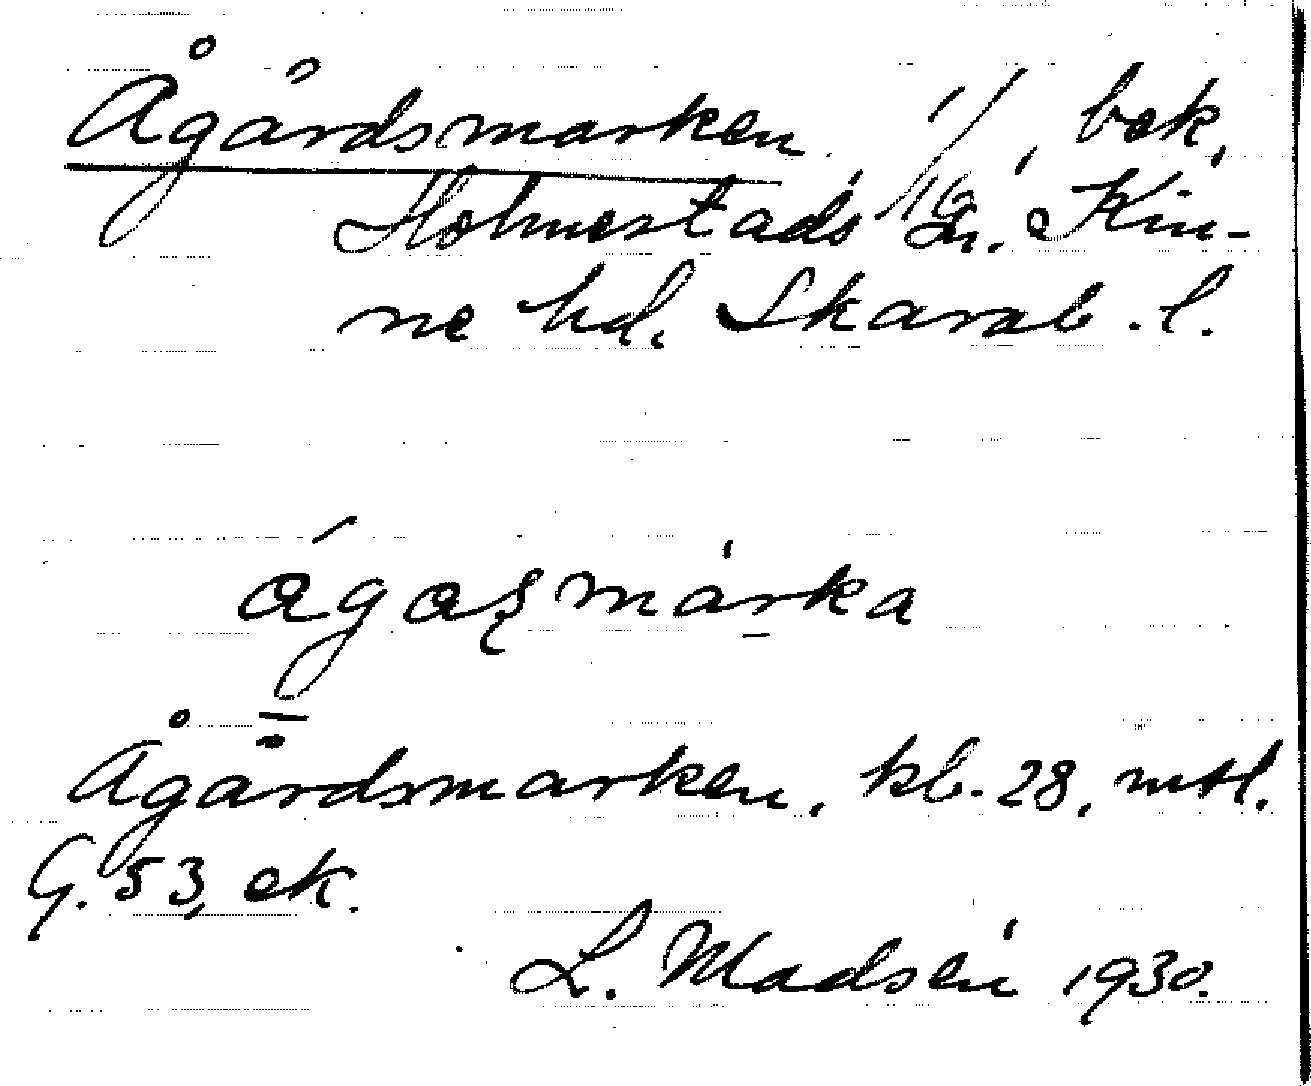 Ågårdsmarken 1/16, bek,
Holmestads sn. Kin-
ne hd. Skarab. l.
ágaʂmárka
Ågårdsmarken, kb. 28, mtl.
G. 53, ek.
L. Madsén 1930.